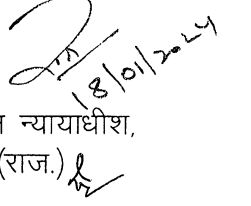 18/01/2024
न्यायाधीश,
(राज.)